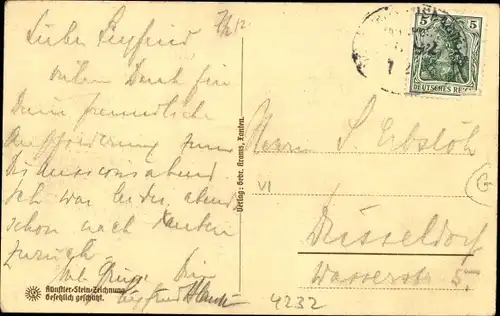 7/2 12.
Lieber Siegfried
vielen Dank für
Deine freundliche
Aufforderung zum
Diskussionsabend
Ich war leider abend
schon nach Xanten
zurück.
Dein
Siegfried
Künstler-Stein-Zeichnung
Gesetzlich geschützt.
Verlag: Gebr. Krams, Xanten.
5 5
DEUTSCHES REICH
Herrn S. Erbslöh
VI
G
Düsseldorf
Wasserstr 5
4232